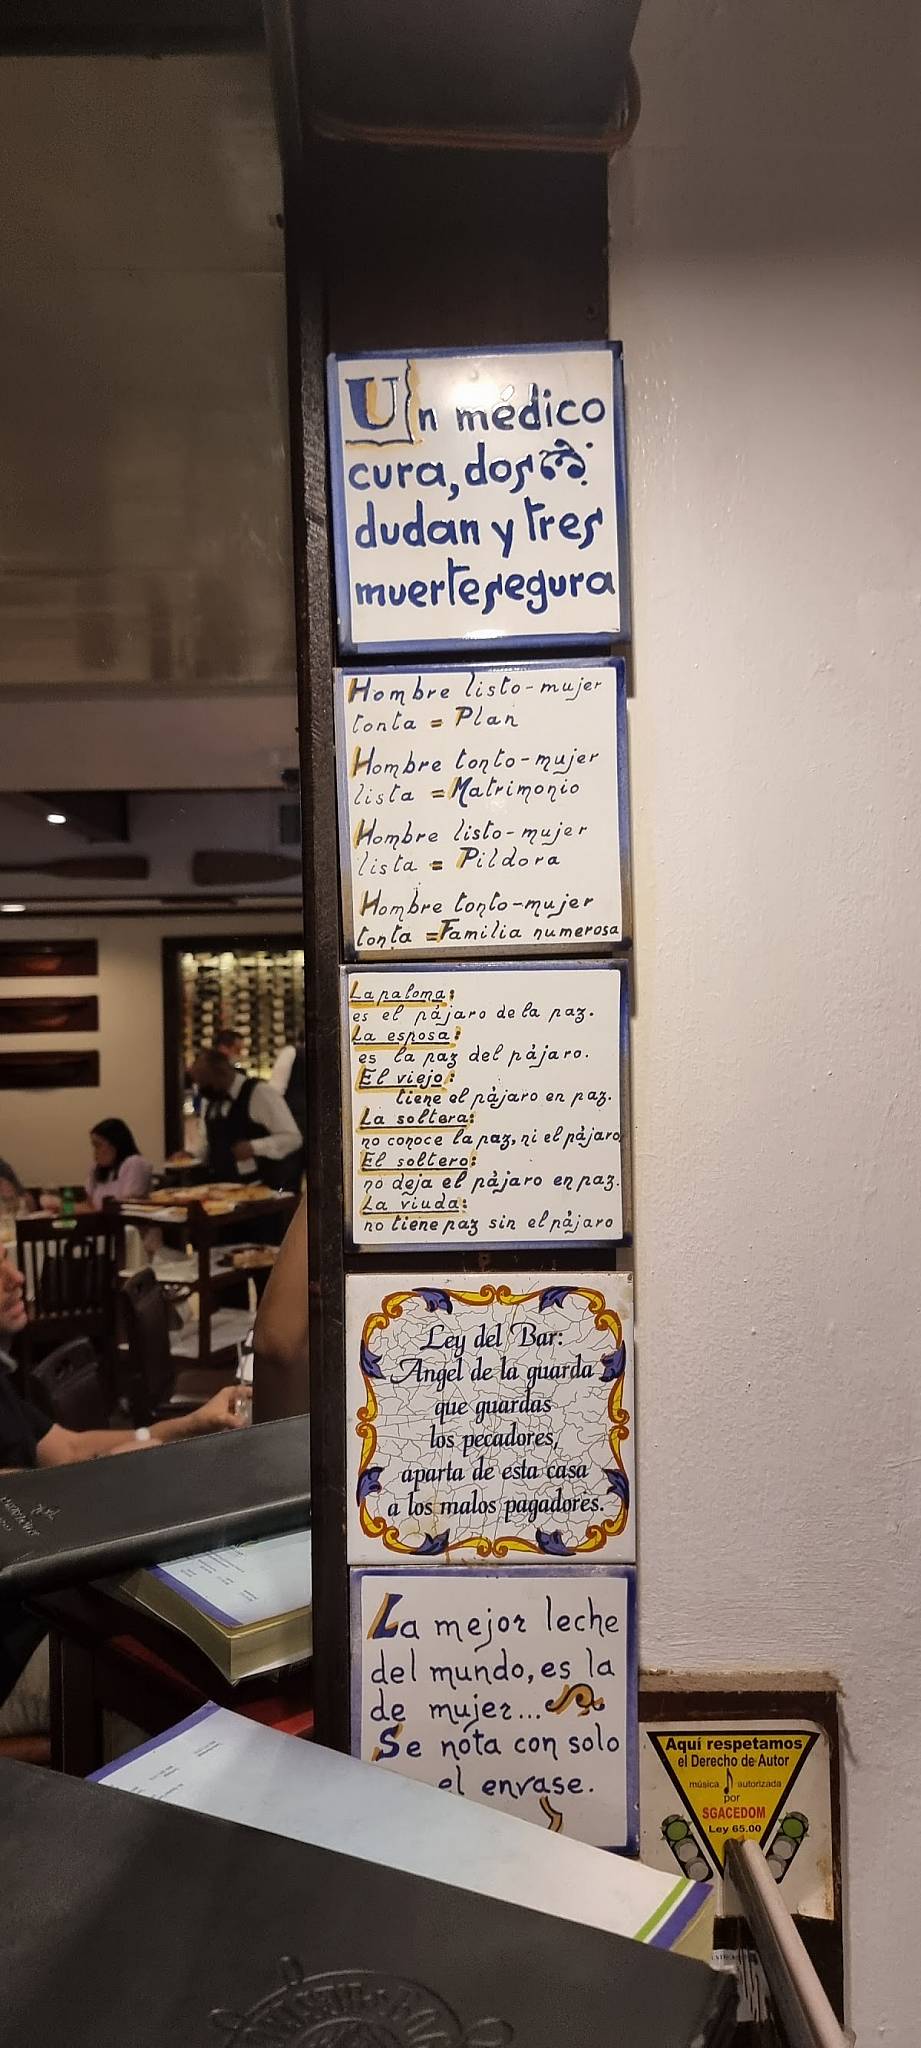 Un médico
cura, dos
dudan y tres
muerte segura
Hombre listo-mujer
tonta = Plan
Hombre tonto-mujer
lista = Matrimonio
Hombre listo-mujer
lista = Pildora
Hombre tonto-mujer
tonta = Familia numerosa
La paloma:
es el pájaro de la paz.
La esposa:
es la paz del pájaro.
El viejo:
tiene el pájaro en paz.
La soltera:
no conoce la paz, ni el pájaro
El soltero:
no deja el pájaro en paz.
La viuda:
no tiene paz sin el pájaro
Ley del Bar:
Angel de la guarda
que guardas
los pecadores,
aparta de esta casa
a los malos pagadores.
La mejor leche
del mundo, es la
de mujer...
Se nota con solo
el envase.
Aquí respetamos
el Derecho de Autor
música autorizada
por
SGACEDOM
Ley 65.00